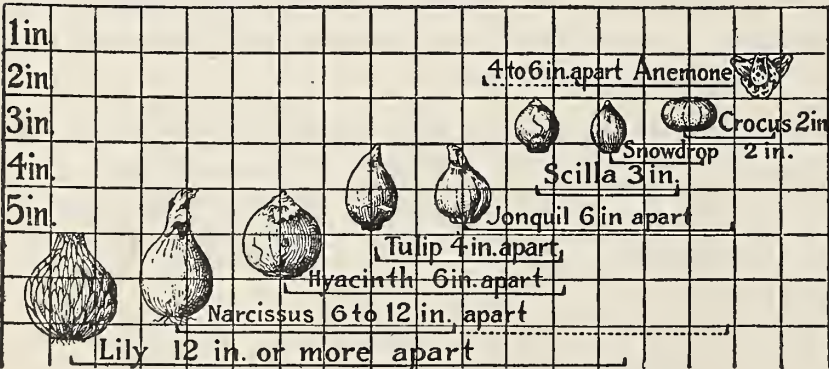 1in.
2in.
4 to 6 in. apart Anemone
3in.
Crocus 2in
Snowdrop 2 in.
4in.
Scilla 3 in.
5in.
Jonquil 6 in apart
Tulip 4 in. apart
Hyacinth 6in. apart
Narcissus 6 to 12 in. apart
Lily 12 in. or more apart